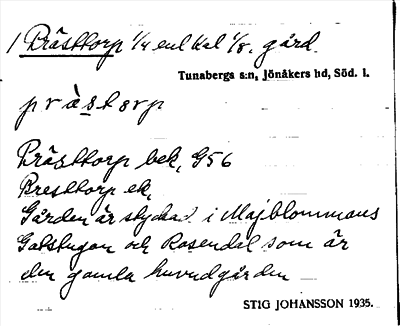 1 Prästtorp 1/4 enl Kal 1/8, gård.
Tunabergs s:n, Jönåkers hd, Söd. l.
prὰstorp
Prästtorp bek, G56
Presttorp ek,
Gården är styckad i Majblommans
Gatstugan och Rosendal som är
den gamla huvudgården
STIG JOHANSSON 1935.